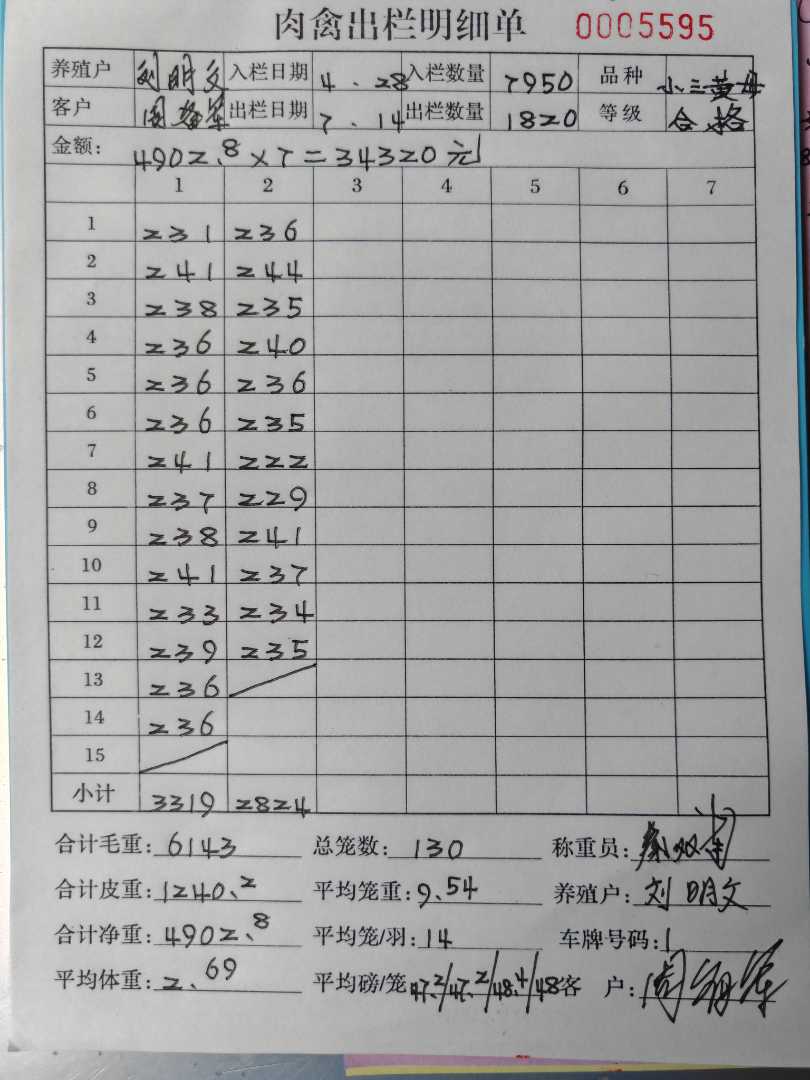 肉禽出栏明细单 0005595
养殖户 刘明文 入栏日期 4.28 入栏数量 7950 品种 小三黄母
客户 出栏日期 7.14 出栏数量 1820 等级 合格
金额: 4902.8×7=34320元
1 2 3 4 5 6 7
1 231 236
2 241 244
3 238 235
4 236 240
5 236 236
6 236 235
7 241 222
8 237 229
9 238 241
10 241 237
11 233 234
12 239 235
13 236
14 236
15
小计 3319 2824
合计毛重: 6143 总笼数: 130 称重员:
合计皮重: 1240.2 平均笼重: 9.54 养殖户: 刘明文
合计净重: 4902.8 平均笼/羽: 14 车牌号码:
平均体重: 2.69 平均磅/笼 47.2/47.2/48.4/48 客 户: